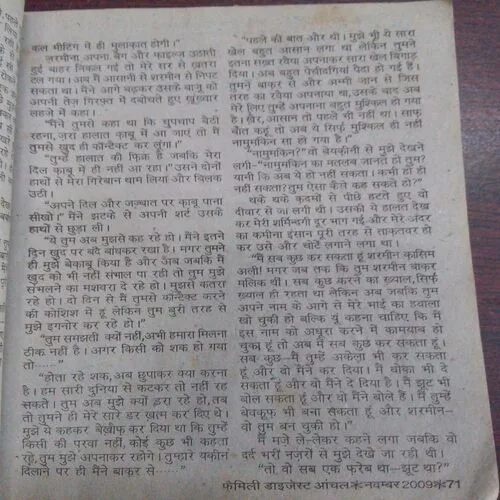 कल मीटिंग में ही मुलाकात होगी।"
ज़रमीना अपना बैग और फाइल्ज़ उठाती
हुई बाहर निकल गई तो मेरे सर से ख़तरा
टल गया। अब मैं आसानी से शरमीन से निपट
सकता था। मैंने आगे बढ़कर उसके बाजू को
अपनी तेज़ गिरफ्त में दबोचते हुए खूंख्वार
लहजे में कहा।
"मैंने तुमसे कहा था कि चुपचाप बैठी
रहना, ज़रा हालात क़ाबू में आ जाएं तो मैं
तुमसे खुद ही कॉन्टेक्ट कर लूंगा।"
"तुम्हें हालात की फ़िक्र है जबकि मेरा
दिल क़ाबू में ही नहीं आ रहा।" उसने दोनों
हाथों से मेरा गिरेबान थाम लिया और बिलक
उठी।
"अपने दिल और जज़्बात पर क़ाबू पाना
सीखो।" मैंने झटके से अपनी शर्ट उसके
हाथों से छुड़ा ली।
"ये तुम अब मुझसे कह रहे हो। मैंने इतने
दिन खुद पर बंदे बांधकर रखा है। मगर तुमने
ही मुझे बेकाबू किया है और अब जबकि मैं
खुद को भी नहीं संभाल पा रही तो तुम मुझे
संभलने का मशवरा दे रहे हो। मुझसे कतरा
रहे हो। दो दिन से मैं तुमसे कॉन्टेक्ट करने
की कोशिश में हूं लेकिन तुम बुरी तरह से
मुझे इगनोर कर रहे हो।"
"तुम समझती क्यों नहीं, अभी हमारा मिलना
ठीक नहीं है। अगर किसी को शक हो गया
तो......"
"होता रहे शक, अब छुपाकर क्या करना
है। हम सारी दुनिया से कटकर तो नहीं रह
सकते। तुम अब मुझे क्यों डरा रहे हो, तब
तो तुमने ही मेरे सारे डर खत्म कर दिए थे।
मुझे ये कहकर बेखौफ़ कर दिया था कि तुम्हें
किसी की परवा नहीं, कोई कुछ भी कहता
रहे, तुम मुझे अपनाकर रहोगे। तुम्हारे यकीन
दिलाने पर ही मैंने बाकर से......"
"पहले की बात और थी। मुझे भी ये सारा
खेल बहुत आसान लगा था लेकिन तुमने
इतना सख्त रवैया अपनाकर सारा खेल बिगाड़
दिया। अब बहुत पेचीदगियां पैदा हो गई हैं।
तुमने बाकर से और अम्मी जान से जिस
तरह का रवैया अपनाया था, उसके बाद अब
मेरे लिए तुम्हें अपनाना बहुत मुश्किल हो गया
है। खैर, आसान तो पहले भी नहीं था। साफ़
बात कहूं तो अब ये सिर्फ़ मुश्किल ही नहीं
नामुमकिन सा हो गया है।"
"नामुमकिन?" वो बेयकीनी से मुझे देखने
लगी-"नामुमकिन का मतलब जानते हो तुम?
यानी कि अब ये हो नहीं सकता। कभी हो ही
नहीं सकता? तुम ऐसा कैसे कह सकते हो?"
थके थके क़दमों से पीछे हटते हुए वो
दीवार से जा लगी थी। उसकी ये हालत देख
कर मेरी शर्मिन्दगी दूर भाग गई और मेरे अंदर
का कमीना इंसान पूरी तरह से ताक़तवर हो
कर उसे और चोटें लगाने लगा था।
"मैं सब कुछ कर सकता हूं शरमीन क़ासिम
अली! मगर जब तक कि तुम शरमीन बाकर
मलिक थीं। सब कुछ करने का ख्याल, सिर्फ़
ख्याल ही रहता था लेकिन अब जबकि तुम
अपने नाम के आगे से मेरे भाई का हवाला
खो चुकी हो बल्कि यूं कहना चाहिए, कि मैं
इस नाम को अधूरा करने में कामयाब हो
चुका हूं तो अब मैं सब कुछ कर सकता हूं।
सब कुछ—मैं तुम्हें अकेला भी कर सकता
हूं और वो मैंने कर दिया। मैं धोखा भी दे
सकता हूं और वो मैंने दे दिया है। मैं झूट भी
बोल सकता हूं और वो मैंने बोले हैं। मैं तुम्हें
बेवकूफ़ भी बना सकता हूं और शरमीन—
वो तुम बन चुकी हो।"
मैं मजे ले-लेकर कहने लगा जबकि वो
दर्द भरी नज़रों से मुझे देखे जा रही थी।
"तो वो सब एक फ़रेब था—झूट था?"
फैमिली डाइजेस्ट आंचल✻नवम्बर 2009✻71